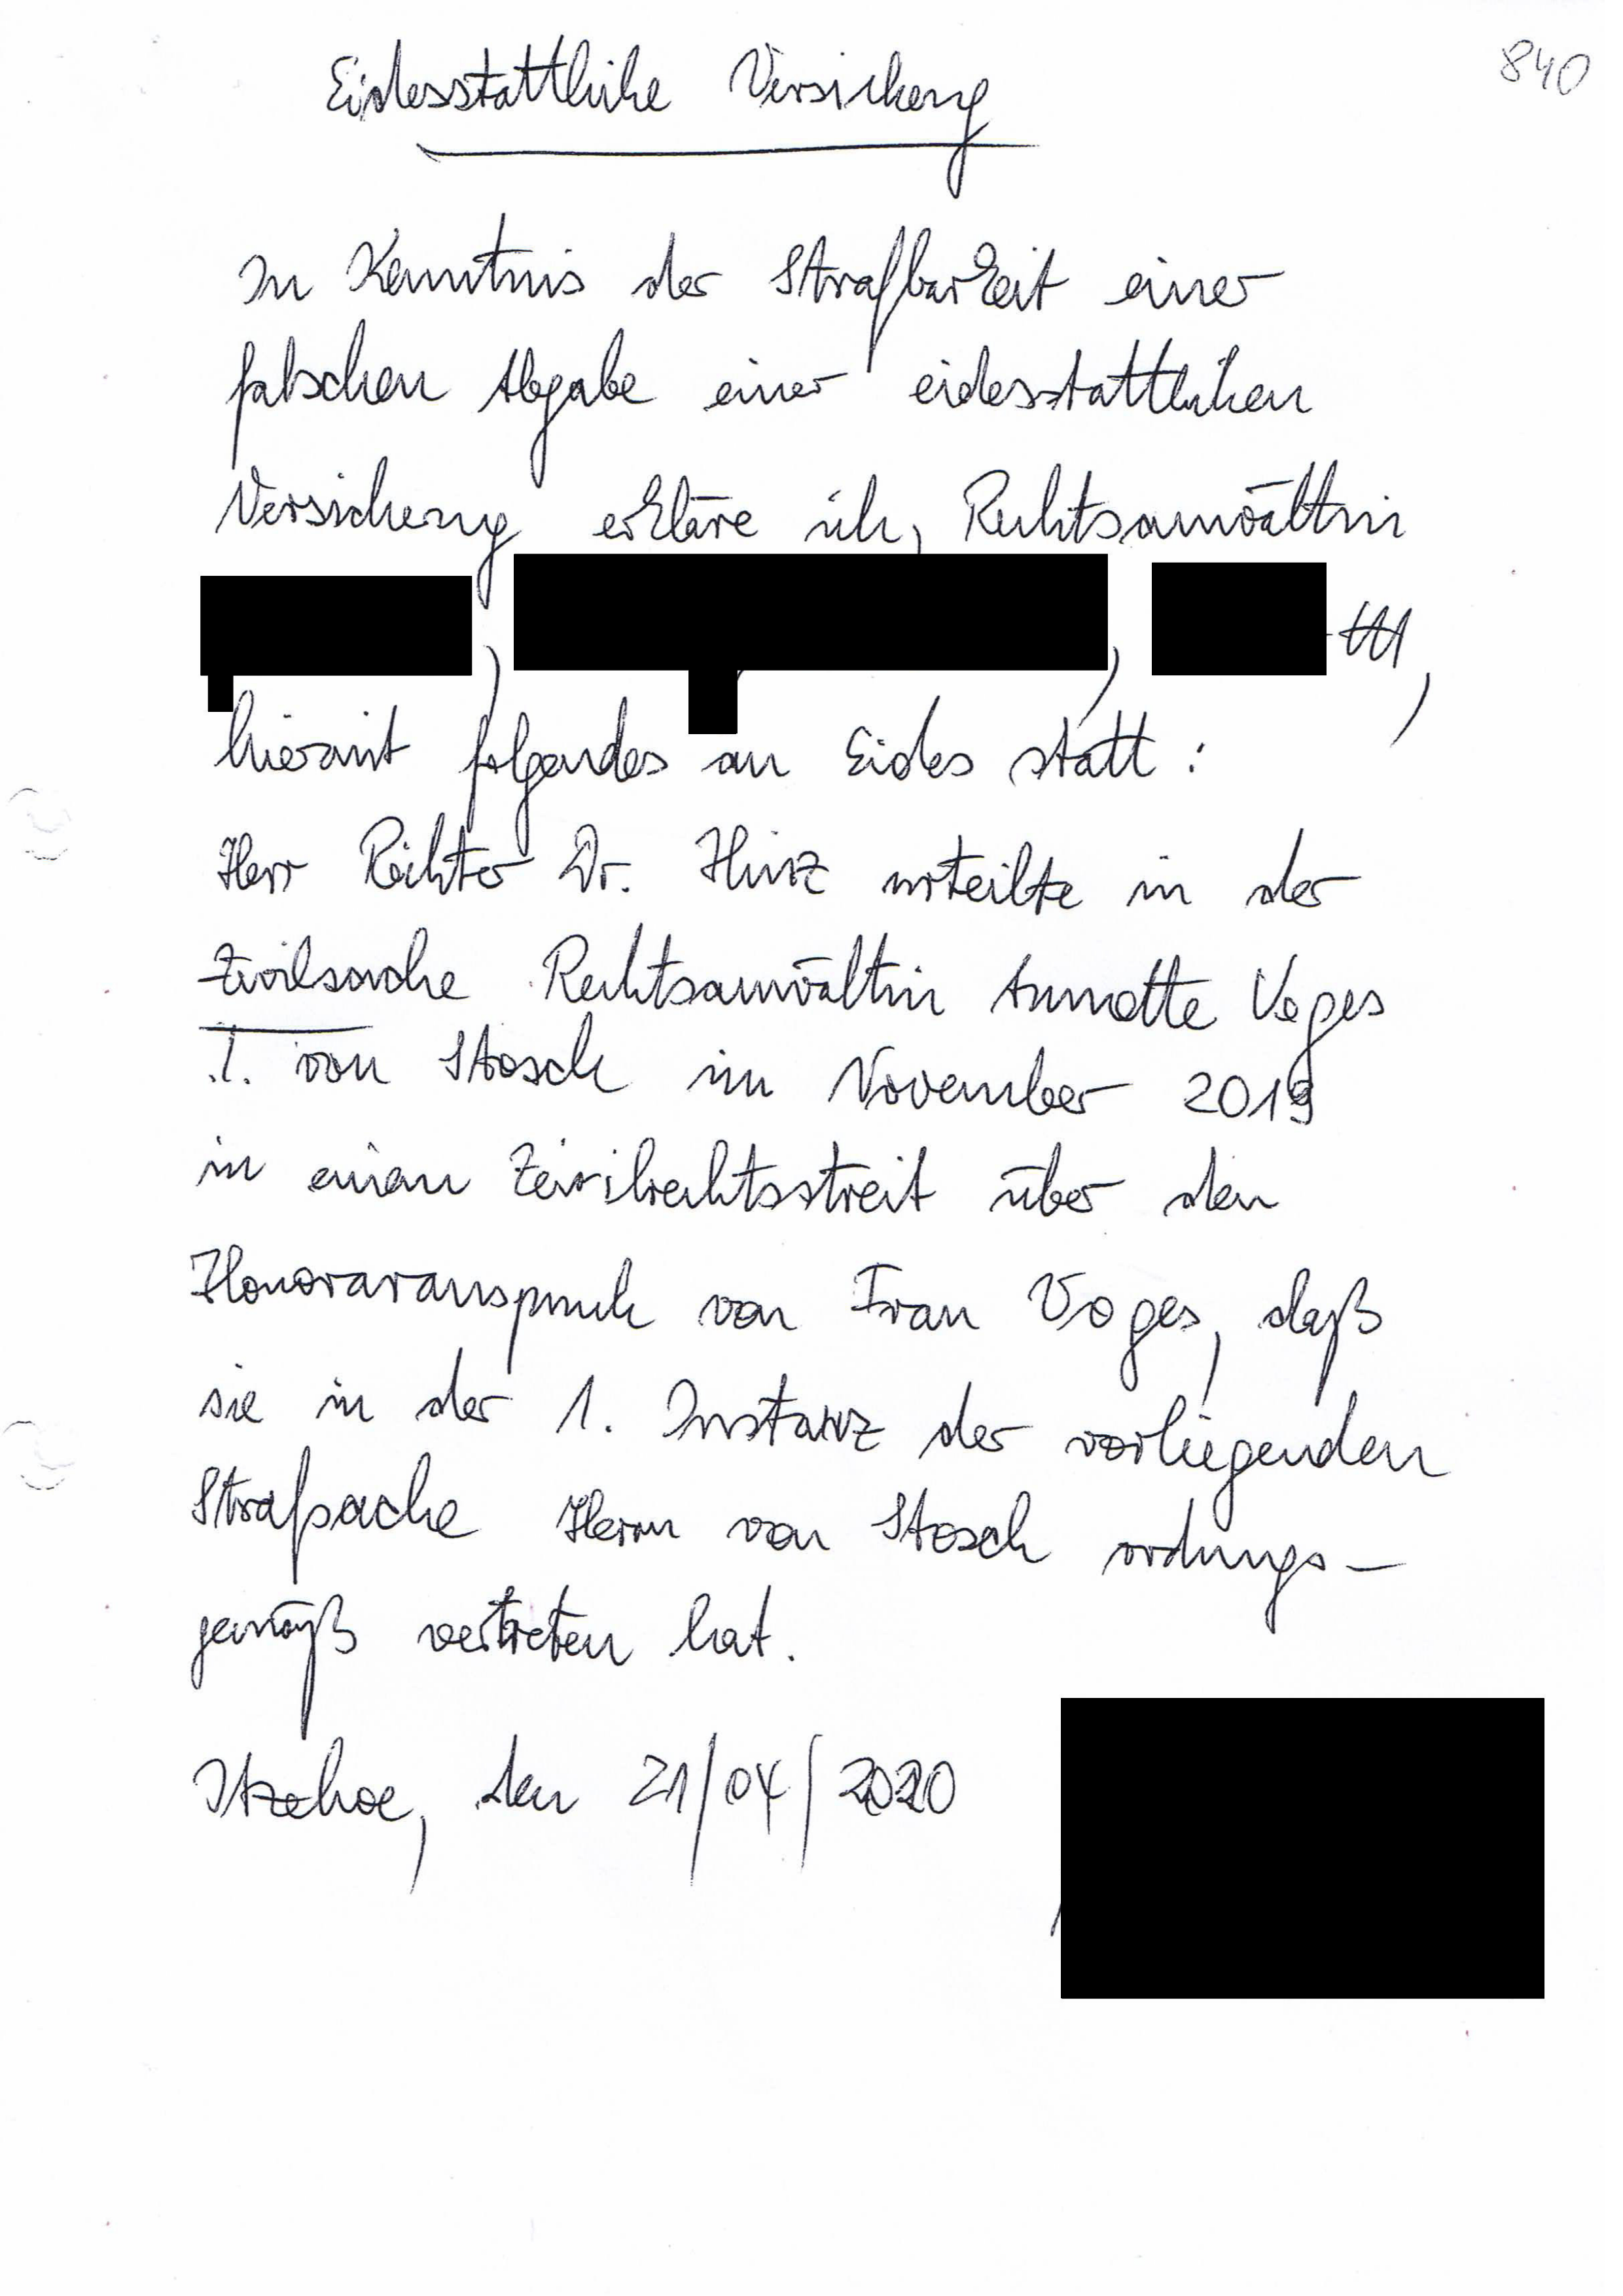 840
Eidesstattliche Versicherung
In Kenntnis der Strafbarkeit einer
falschen Abgabe einer eidesstattlichen
Versicherung erkläre ich, Rechtsanwältin
, , ,
hiermit folgendes an Eides statt:
Herr Richter Dr. Hinz urteilte in der
Zivilsache Rechtsanwältin Annette Voges
./. von Stosch im November 2019
in einen Zivilrechtsstreit über den
Honoraranspruch von Frau Voges, daß
sie in der 1. Instanz der vorliegenden
Strafsache Herrn von Stosch ordnungs-
gemäß vertreten hat.
Itzehoe, den 21/04/2020